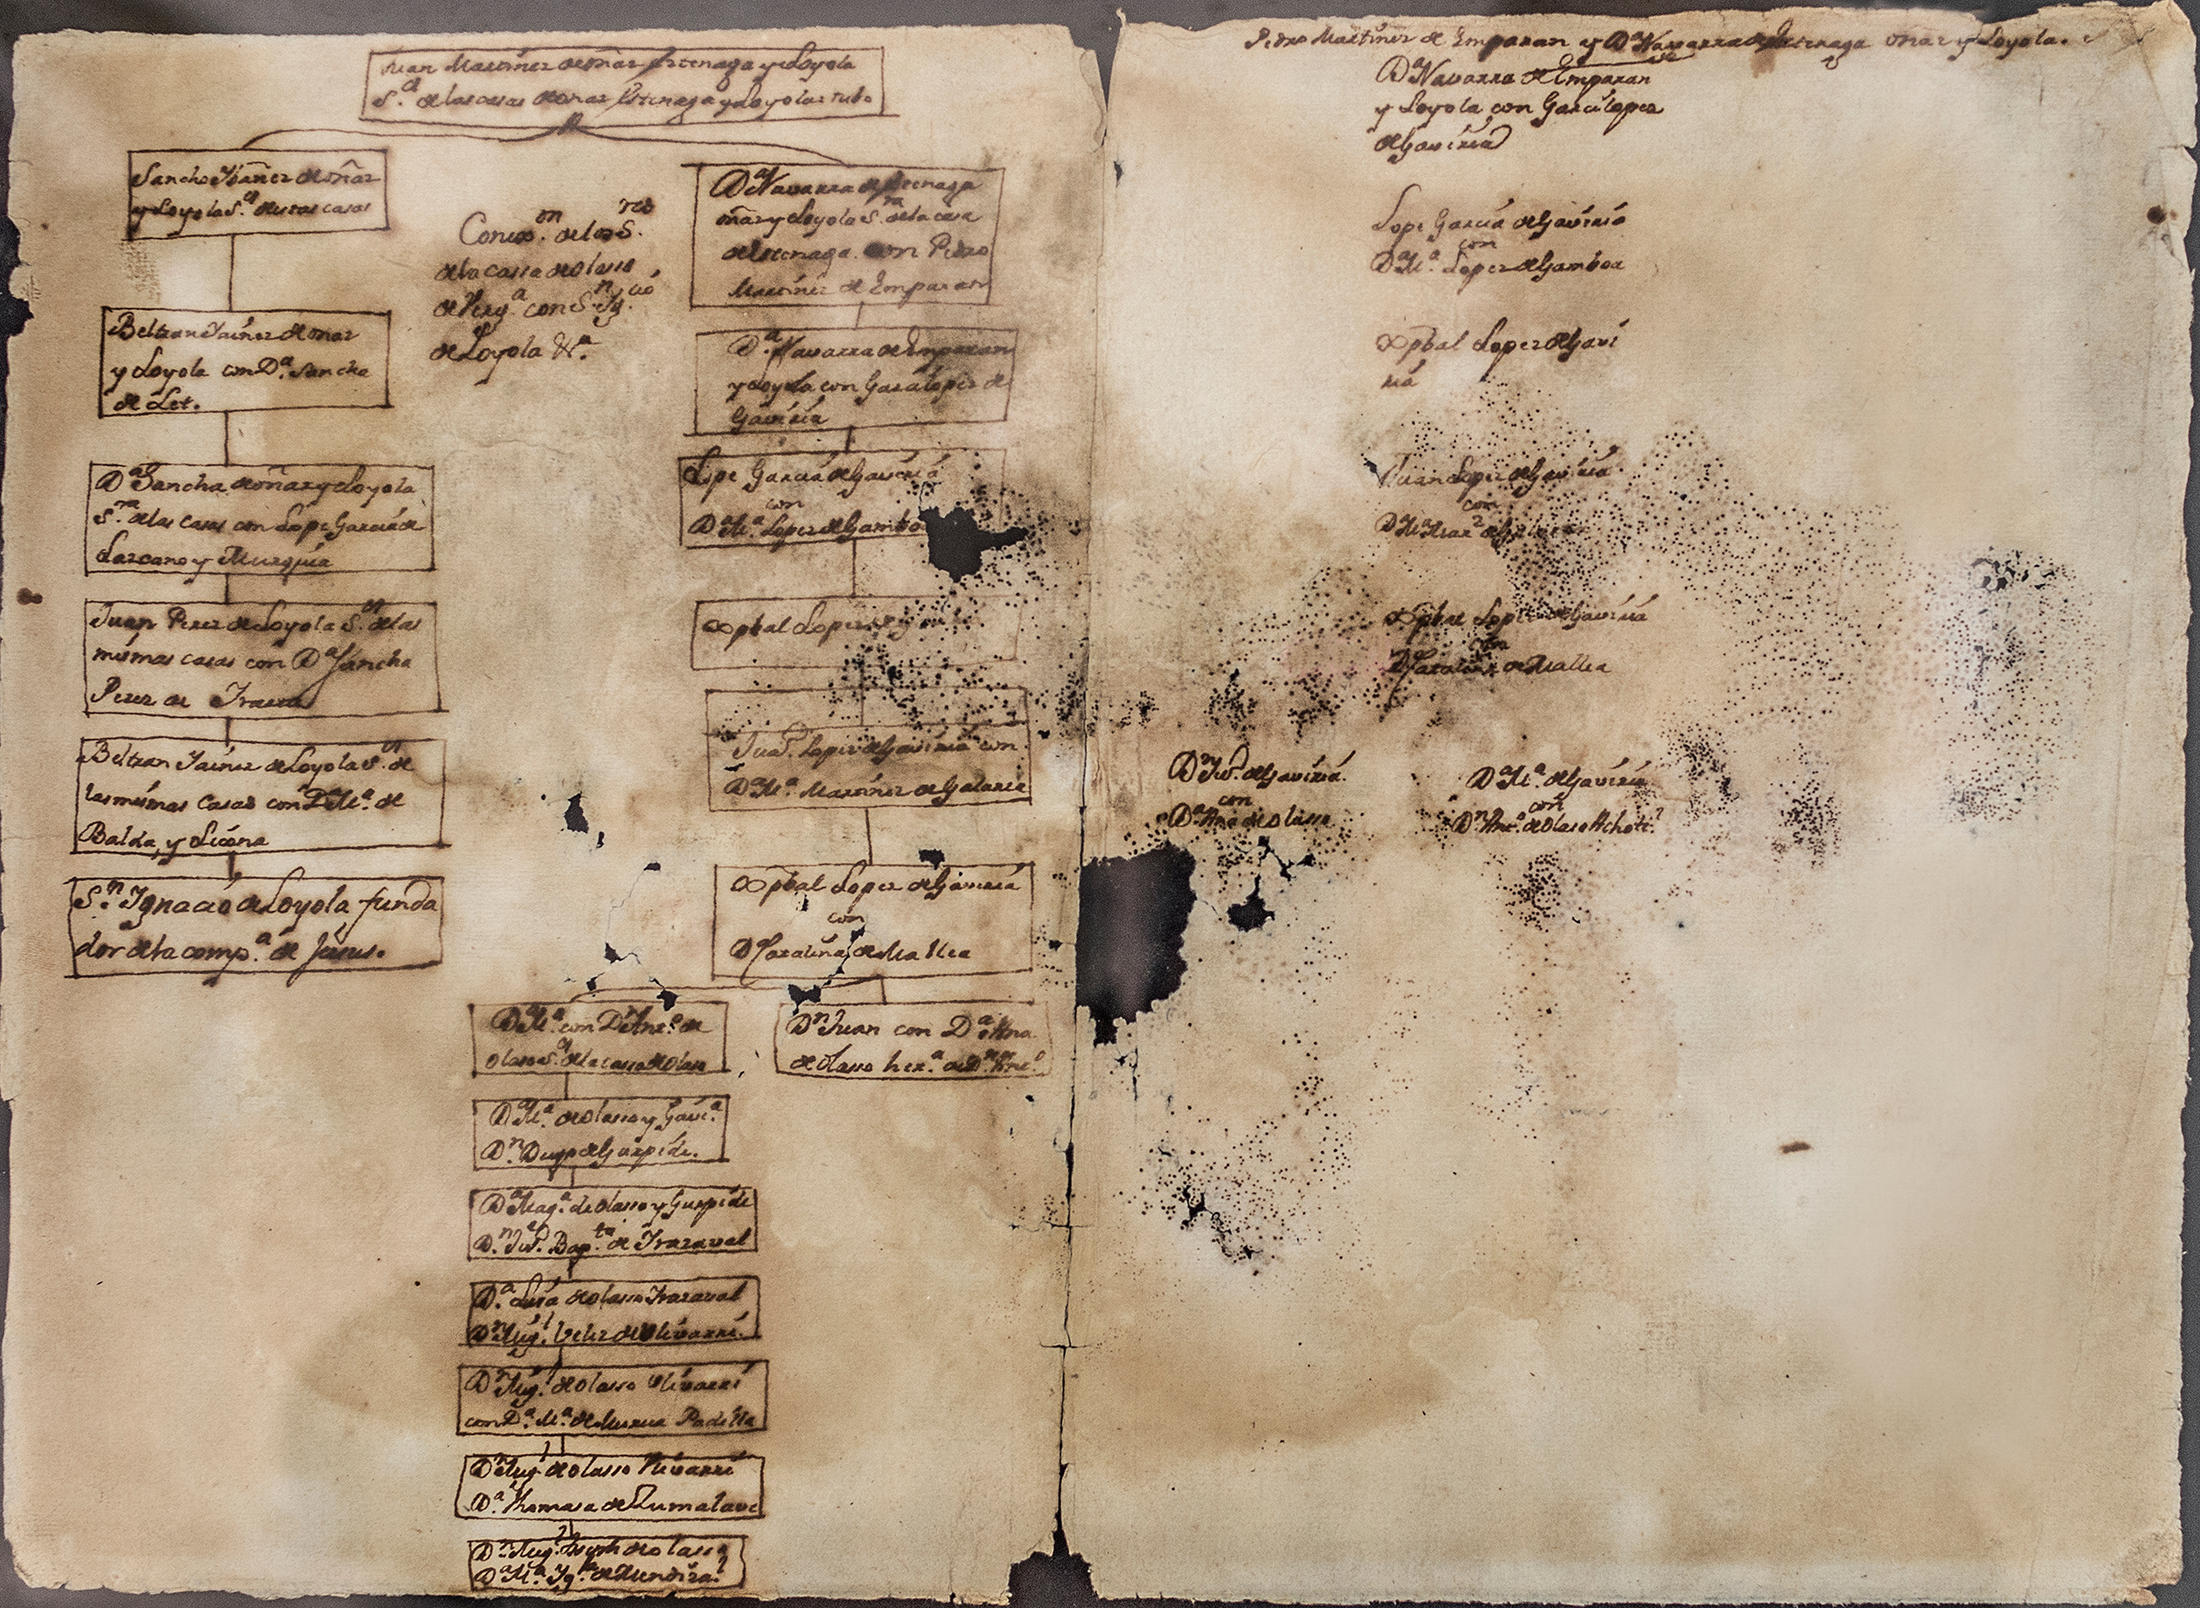 Juan Martinez de oñaz Iztenaga y de Loyola
S.r de las casas de onaz Iztenaga y Loyolaz tubo
Sancho Ybañez de oñaz
y Loyola S.r de estas casas
Beltran Yáinez de onaz
y Loyola con D.a Sancha
de Let.
D.a Sancha de oñaz y Loyola
S.ra de las casas con Lope García de
Lazcano y Murguía
Juan Perez de Loyola S.or de las
mismas casas con D.a Sancha
Perez de
Beltran Yáinez de Loyola S.or de
las mismas casas con D.a M.a de
Balda, y Licona
S.n Ygnacio de Loyola funda
dor de la comp.a de Jesus.
Conex.on de los S.res
de la cassa de olasso
de Verg.a con S.n Yg.cio
de Loyola &.a
D.a Navarra de Iztenaga
oñaz y Loyola S.ra de la casa
de Iztenaga con Pedro
Martinez de Emparan
D.a Navarra de Emparan
y Loyola con García Lopez de
Gaviria
Lope García de Gaviria
con
D.a M.a Lopez de Gamboa
Xpbal Lopez de
Ju.n Lopez de Gaviria con
D.a M.a Martinez de Galarza
Xpbal Lopez de Gaviria
con
D.a Catalina de Mallea
D.a M.a con D.n And.s de
olaso S.r de la cassa de olaso
D.n Juan con D.a Ana
de olasso her.a de D.n And.s
D.a M.a de olasso y Gavi.a
D.n Diego de Guzpide.
D.a Mag.a de olasso y Guzpide
D.n Ju.n Bap.ta de Yrazaval
D.a Luisa de olasso Yrazaval
D.n Mig.l Velez de olivarri.
D.n Mig.l de olasso Ulivarri
con D.a M.a de Murua Padilla
D.n Mig.l de olasso Ulivarri
D.a Thomasa de Zumalave
D.n Mig.l Joseph de olasso
D.a M.a Yg.a de Mendiza.l
Pedro Martinez de Emparan y D.a Navarra de Iztenaga onaz y Loyola.
D.a Navarra de Emparan
y Loyola con García Lopez
de Gaviria
Lope García de Gaviria
con
D.a M.a Lopez de Gamboa
Xpbal Lopez de Gavi
ria
Juan Lopez de Gaviria
con
D.a M.a
Xpbal Lopez de Gaviria
con
D.a Catalina de Mallea
D.n Ju.n de Gaviria.
con
D.a Ana de olasso
D.a M.a de Gaviria
con
D.n And.s de olaso